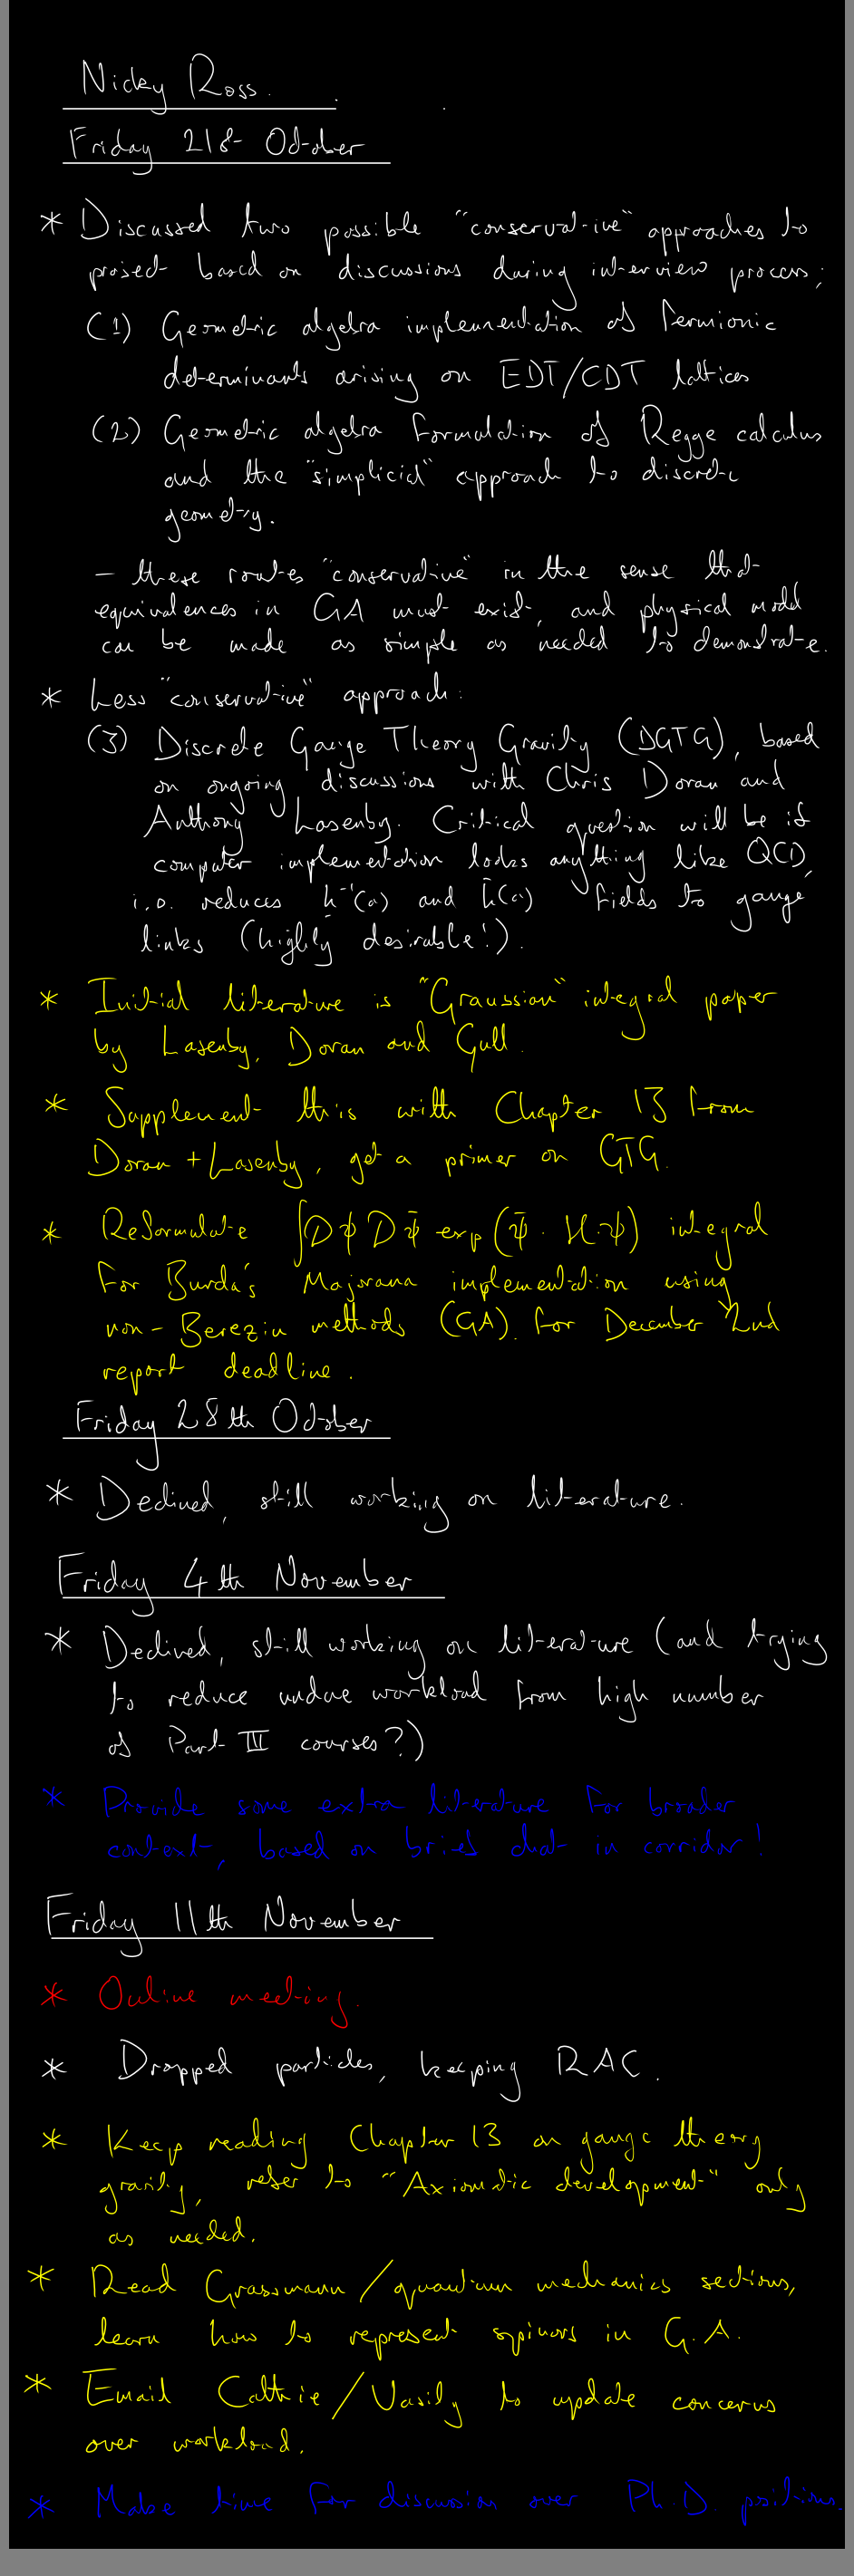 Nicky Ross.
Friday 21st October
* Discussed two possible "conservative" approaches to
project based on discussions during interview process:
(1) Geometric algebra implementation of fermionic
determinants arising on EDT/CDT lattices
(2) Geometric algebra formulation of Regge calculus
and the "simplicial" approach to discrete
geometry.
- these routes "conservative" in the sense that
equivalences in GA must exist, and physical model
can be made as simple as needed to demonstrate.
* Less "conservative" approach:
(3) Discrete Gauge Theory Gravity (DGTG), based
on ongoing discussions with Chris Doran and
Anthony Lasenby. Critical question will be if
computer implementation looks anything like QCD,
i.e. reduces h⁻¹(a) and h̄(a) fields to gauge
links (highly desirable!).
* Initial literature is "Graussian" integral paper
by Lasenby, Doran and Gull.
* Supplement this with Chapter 13 from
Doran + Lasenby, get a primer on GTG.
* Reformulate ∫DψDψ̄ exp(ψ̄·H·ψ) integral
for Burda's Majorana implementation using
non-Berezin methods (GA) for December 2nd
report deadline.
Friday 28th October
* Declined, still working on literature.
Friday 4th November
* Declined, still working on literature (and trying
to reduce undue workload from high number
of Part III courses?)
* Provide some extra literature for broader
context, based on brief chat in corridor!
Friday 11th November
* Online meeting.
* Dropped particles, keeping RAC.
* Keep reading Chapter 13 on gauge theory
gravity, refer to "Axiomatic development" only
as needed.
* Read Grassmann/quantum mechanics sections,
learn how to represent spinors in G.A.
* Email Cathie/Vasily to update concerns
over workload.
* Make time for discussion over Ph.D. positions.